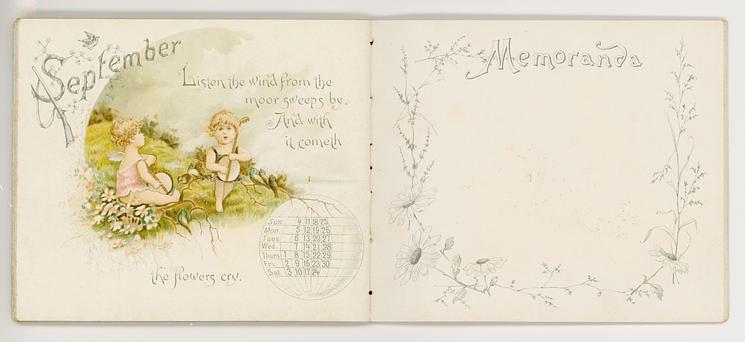 September
Listen the wind from the
moor sweeps by,
And with
it cometh
the flowers cry.
Sun. 4 11 18 25
Mon. 5 12 19 26
Tues. 6 13 20 27
Wed. 7 14 21 28
Thurs. 1 8 15 22 29
Fri. 2 9 16 23 30
Sat. 3 10 17 24
Memoranda